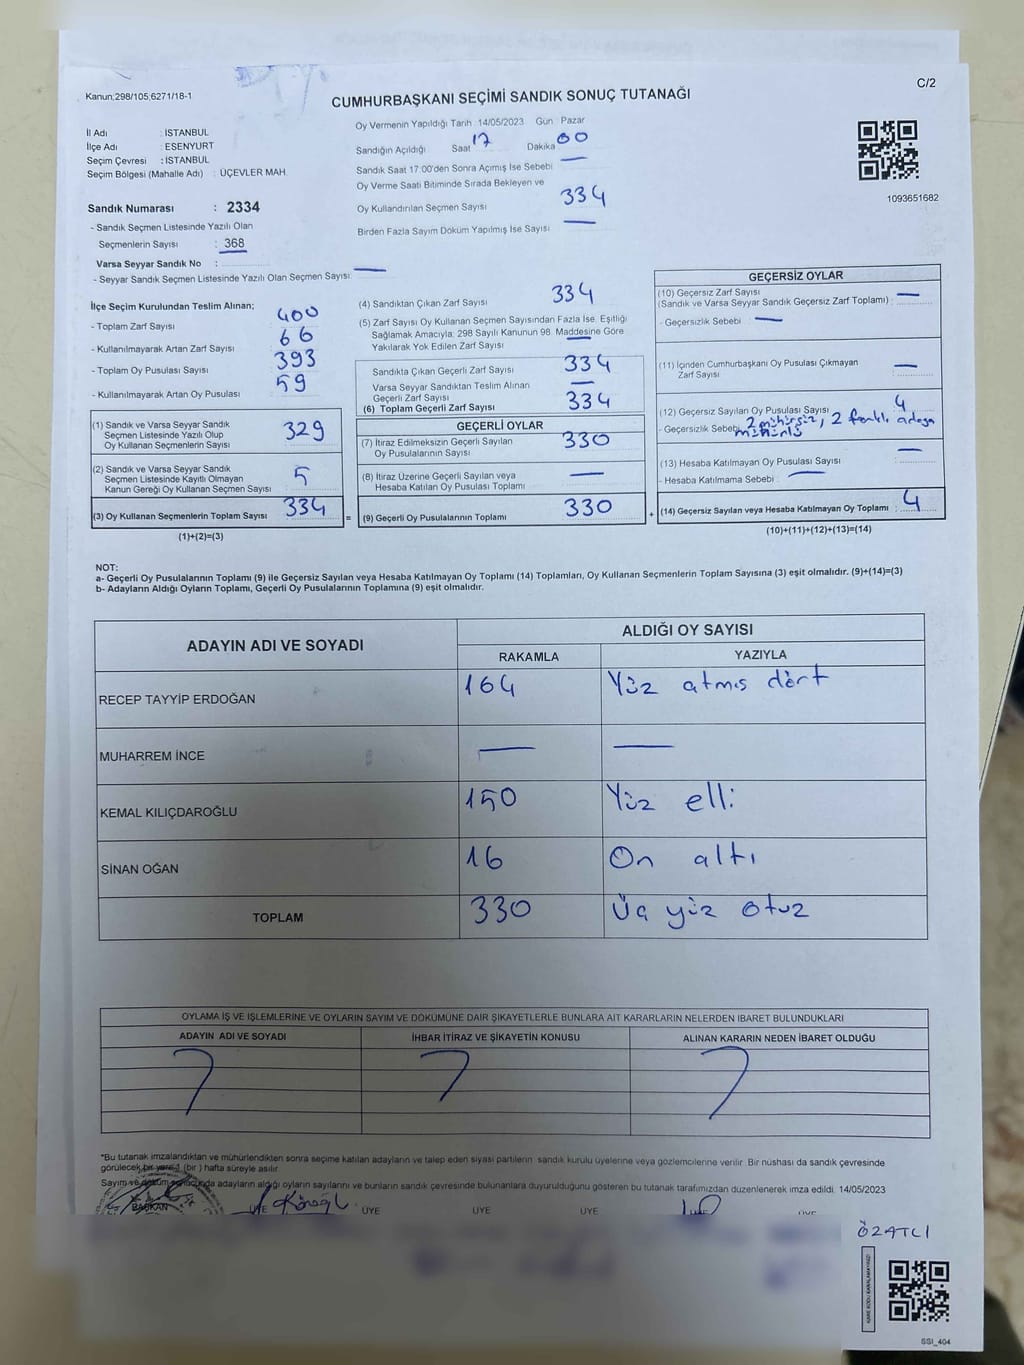 Kanun;298/105;6271/18-1
C/2
CUMHURBAŞKANI SEÇİMİ SANDIK SONUÇ TUTANAĞI
İl Adı : İSTANBUL
İlçe Adı : ESENYURT
Seçim Çevresi : İSTANBUL
Seçim Bölgesi (Mahalle Adı) : ÜÇEVLER MAH.
Sandık Numarası : 2334
- Sandık Seçmen Listesinde Yazılı Olan
Seçmenlerin Sayısı : 368
Varsa Seyyar Sandık No :
- Seyyar Sandık Seçmen Listesinde Yazılı Olan Seçmen Sayısı: —
Oy Vermenin Yapıldığı Tarih 14/05/2023 Gün Pazar
Sandığın Açıldığı Saat 17 Dakika 00
Sandık Saat 17:00'den Sonra Açımış İse Sebebi —
Oy Verme Saati Bitiminde Sırada Bekleyen ve
Oy Kullandırılan Seçmen Sayısı 334
Birden Fazla Sayım Döküm Yapılmış İse Sayısı —
1093651682
İlçe Seçim Kurulundan Teslim Alınan;
- Toplam Zarf Sayısı 400
- Kullanılmayarak Artan Zarf Sayısı 66
- Toplam Oy Pusulası Sayısı 393
- Kullanılmayarak Artan Oy Pusulası 59
(1) Sandık ve Varsa Seyyar Sandık
Seçmen Listesinde Yazılı Olup
Oy Kullanan Seçmenlerin Sayısı 329
(2) Sandık ve Varsa Seyyar Sandık
Seçmen Listesinde Kayıtlı Olmayan
Kanun Gereği Oy Kullanan Seçmen Sayısı 5
(3) Oy Kullanan Seçmenlerin Toplam Sayısı 334
(1)+(2)=(3)
(4) Sandıktan Çıkan Zarf Sayısı 334
(5) Zarf Sayısı Oy Kullanan Seçmen Sayısından Fazla İse, Eşitliği
Sağlamak Amacıyla; 298 Sayılı Kanunun 98. Maddesine Göre
Yakılarak Yok Edilen Zarf Sayısı —
Sandıkta Çıkan Geçerli Zarf Sayısı 334
Varsa Seyyar Sandıktan Teslim Alınan
Geçerli Zarf Sayısı —
(6) Toplam Geçerli Zarf Sayısı 334
GEÇERLİ OYLAR
(7) İtiraz Edilmeksizin Geçerli Sayılan
Oy Pusulalarının Sayısı 330
(8) İtiraz Üzerine Geçerli Sayılan veya
Hesaba Katılan Oy Pusulası Toplamı —
= (9) Geçerli Oy Pusulalarının Toplamı 330
GEÇERSİZ OYLAR
(10) Geçersiz Zarf Sayısı
(Sandık ve Varsa Seyyar Sandık Geçersiz Zarf Toplamı) : —
- Geçersizlik Sebebi : —
(11) İçinden Cumhurbaşkanı Oy Pusulası Çıkmayan
Zarf Sayısı : —
(12) Geçersiz Sayılan Oy Pusulası Sayısı : 4
- Geçersizlik Sebebi: 2 mühürsüz, 2 farklı adaya
mühürlü
(13) Hesaba Katılmayan Oy Pusulası Sayısı —
- Hesaba Katılmama Sebebi : —
+ (14) Geçersiz Sayılan veya Hesaba Katılmayan Oy Toplamı : 4
(10)+(11)+(12)+(13)=(14)
NOT:
a- Geçerli Oy Pusulalarının Toplamı (9) ile Geçersiz Sayılan veya Hesaba Katılmayan Oy Toplamı (14) Toplamları, Oy Kullanan Seçmenlerin Toplam Sayısına (3) eşit olmalıdır. (9)+(14)=(3)
b- Adayların Aldığı Oyların Toplamı, Geçerli Oy Pusulalarının Toplamına (9) eşit olmalıdır.
ADAYIN ADI VE SOYADI
ALDIĞI OY SAYISI
RAKAMLA YAZIYLA
RECEP TAYYİP ERDOĞAN 164 Yüz atmış dört
MUHARREM İNCE — —
KEMAL KILIÇDAROĞLU 150 Yüz elli
SİNAN OĞAN 16 On altı
TOPLAM 330 Üç yüz otuz
OYLAMA İŞ VE İŞLEMLERİNE VE OYLARIN SAYIM VE DÖKÜMÜNE DAİR ŞİKAYETLERLE BUNLARA AİT KARARLARIN NELERDEN İBARET BULUNDUKLARI
ADAYIN ADI VE SOYADI İHBAR İTİRAZ VE ŞİKAYETİN KONUSU ALINAN KARARIN NEDEN İBARET OLDUĞU
*Bu tutanak imzalandıktan ve mühürlendikten sonra seçime katılan adayların ve talep eden siyasi partilerin sandık kurulu üyelerine veya gözlemcilerine verilir. Bir nüshası da sandık çevresinde
görülecek bir yere 1 (bir ) hafta süreyle asılır.
Sayım ve döküm sonucunda adayların aldığı oyların sayılarını ve bunların sandık çevresinde bulunanlara duyurulduğunu gösteren bu tutanak tarafımızdan düzenlenerek imza edildi. 14/05/2023
BAŞKAN ÜYE ÜYE ÜYE ÜYE ÜYE ÜYE
ÖZATLI
SSI_404